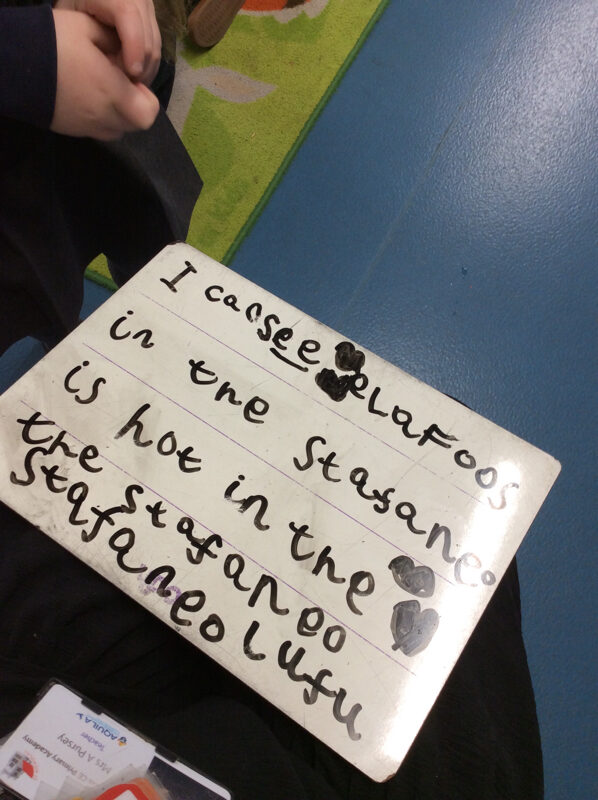 I can see elafoos
in the stafane.
is hot in the
the stafaneo
stafaneo lufu
AQUILA
Teacher
Mrs A Pursey
CE Primary Academy